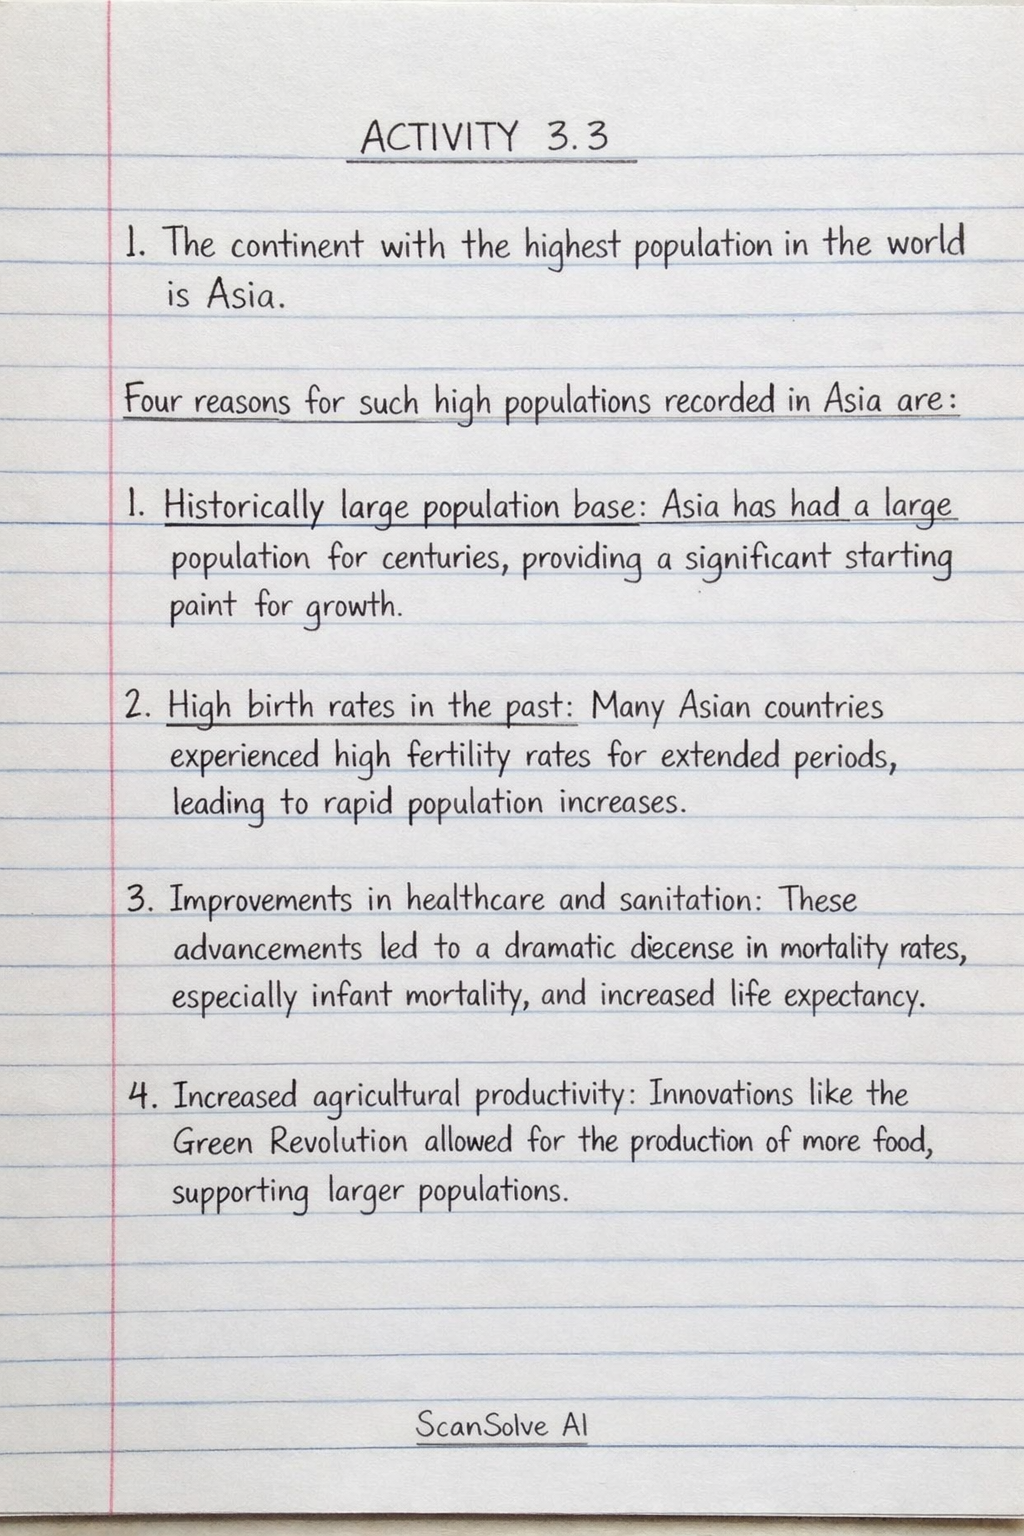 ACTIVITY 3.3
1. The continent with the highest population in the world
is Asia.
Four reasons for such high populations recorded in Asia are:
1. Historically large population base: Asia has had a large
population for centuries, providing a significant starting
paint for growth.
2. High birth rates in the past: Many Asian countries
experienced high fertility rates for extended periods,
leading to rapid population increases.
3. Improvements in healthcare and sanitation: These
advancements led to a dramatic diecense in mortality rates,
especially infant mortality, and increased life expectancy.
4. Increased agricultural productivity: Innovations like the
Green Revolution allowed for the production of more food,
supporting larger populations.
ScanSolve AI